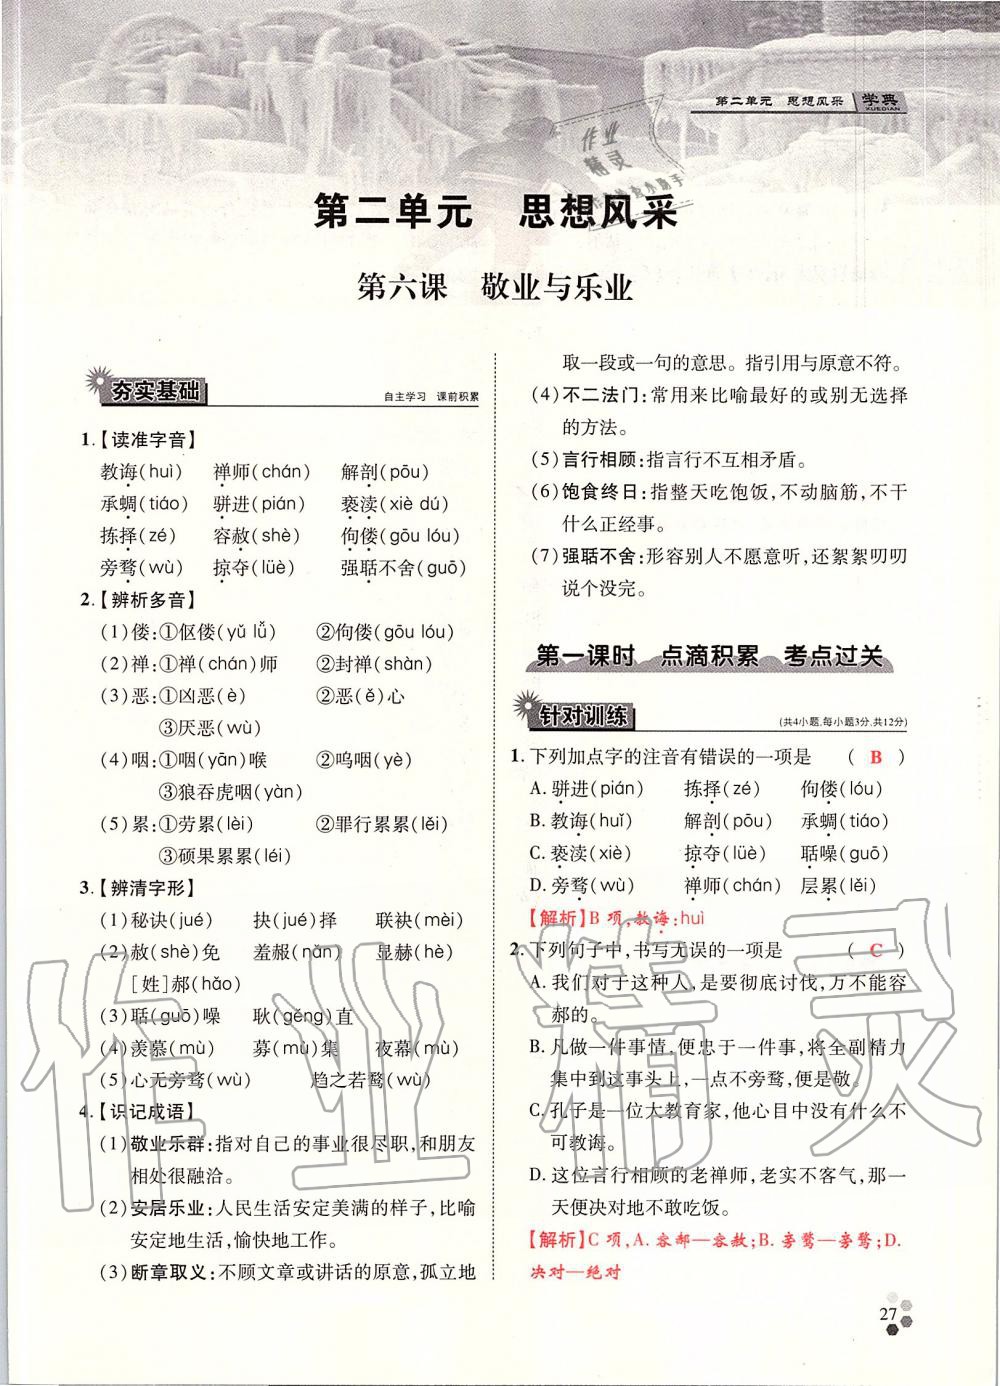 第二单元 思想风采 学典
XUEDIAN
第二单元 思想风采
第六课 敬业与乐业
夯实基础 自主学习 课前积累
1.【读准字音】
教诲(huì) 禅师(chán) 解剖(pōu)
承蜩(tiáo) 骈进(pián) 亵渎(xiè dú)
拣择(zé) 容赦(shè) 佝偻(gōu lóu)
旁骛(wù) 掠夺(lüè) 强聒不舍(guō)
2.【辨析多音】
(1)偻:①伛偻(yǔ lǚ) ②佝偻(gōu lóu)
(2)禅:①禅(chán)师 ②封禅(shàn)
(3)恶:①凶恶(è) ②恶(ě)心
③厌恶(wù)
(4)咽:①咽(yān)喉 ②呜咽(yè)
③狼吞虎咽(yàn)
(5)累:①劳累(lèi) ②罪行累累(lěi)
③硕果累累(léi)
3.【辨清字形】
(1)秘诀(jué) 抉(jué)择 联袂(mèi)
(2)赦(shè)免 羞赧(nǎn) 显赫(hè)
[姓]郝(hǎo)
(3)聒(guō)噪 耿(gěng)直
(4)羡慕(mù) 募(mù)集 夜幕(mù)
(5)心无旁骛(wù) 趋之若鹜(wù)
4.【识记成语】
(1)敬业乐群:指对自己的事业很尽职,和朋友
相处很融洽。
(2)安居乐业:人民生活安定美满的样子,比喻
安定地生活,愉快地工作。
(3)断章取义:不顾文章或讲话的原意,孤立地
取一段或一句的意思。指引用与原意不符。
(4)不二法门:常用来比喻最好的或别无选择
的方法。
(5)言行相顾:指言行不互相矛盾。
(6)饱食终日:指整天吃饱饭,不动脑筋,不干
什么正经事。
(7)强聒不舍:形容别人不愿意听,还絮絮叨叨
说个没完。
第一课时 点滴积累 考点过关
针对训练 (共4小题,每小题3分,共12分)
1.下列加点字的注音有错误的一项是 ( B )
A.骈进(pián) 拣择(zé) 佝偻(lóu)
B.教诲(huǐ) 解剖(pōu) 承蜩(tiáo)
C.亵渎(xiè) 掠夺(lüè) 聒噪(guō)
D.旁骛(wù) 禅师(chán) 层累(lěi)
【解析】B项,教诲:huì
2.下列句子中,书写无误的一项是 ( C )
A.我们对于这种人,是要彻底讨伐,万不能容
郝的。
B.凡做一件事情,便忠于一件事,将全副精力
集中到这事头上,一点不旁鹜,便是敬。
C.孔子是一位大教育家,他心目中没有什么不
可教诲。
D.这位言行相顾的老禅师,老实不客气,那一
天便决对地不敢吃饭。
【解析】C项,A.容郝—容赦;B.旁鹜—旁骛;D.
决对—绝对
27
作业精灵
作业
精灵